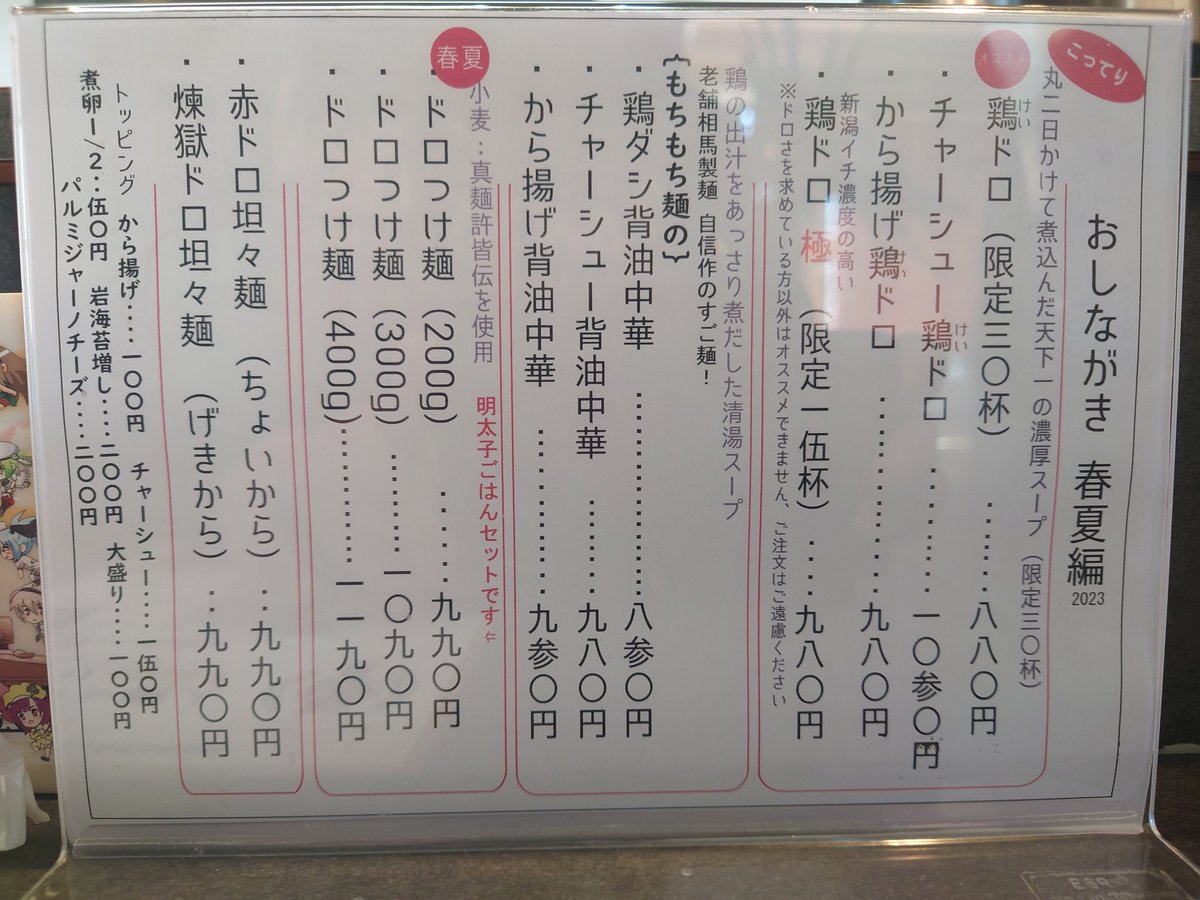 おしながき 春夏編
2023
こってり
丸二日かけて煮込んだ天下一の濃厚スープ(限定三〇杯)
オススメ
・鶏ドロ(限定三〇杯)………八八〇円
けい
・チャーシュー鶏ドロ………一〇参〇円
けい
・から揚げ鶏ドロ………九八〇円
けい
新潟イチ濃度の高い
・鶏ドロ 極(限定一伍杯)……九八〇円
※ドロさを求めている方以外はオススメできません、ご注文はご遠慮ください
鶏の出汁をあっさり煮だした清湯スープ
老舗相馬製麺 自信作のすご麺!
{もちもち麺の}
・鶏ダシ背油中華………八参〇円
・チャーシュー背油中華………九八〇円
・から揚げ背油中華………九参〇円
春夏
小麦:真麺許皆伝を使用 明太子ごはんセットです⇐
・ドロつけ麺(200g)………九九〇円
・ドロつけ麺(300g)………一〇九〇円
・ドロつけ麺(400g)………一一九〇円
・赤ドロ坦々麺(ちょいから)‥九九〇円
・煉獄ドロ坦々麺(げきから)‥九九〇円
トッピング から揚げ‥‥一〇〇円 チャーシュー‥‥一伍〇円
煮卵1/2‥伍〇円 岩海苔増し‥‥二〇〇円 大盛り‥‥一〇〇円
パルミジャーノチーズ‥‥二〇〇円